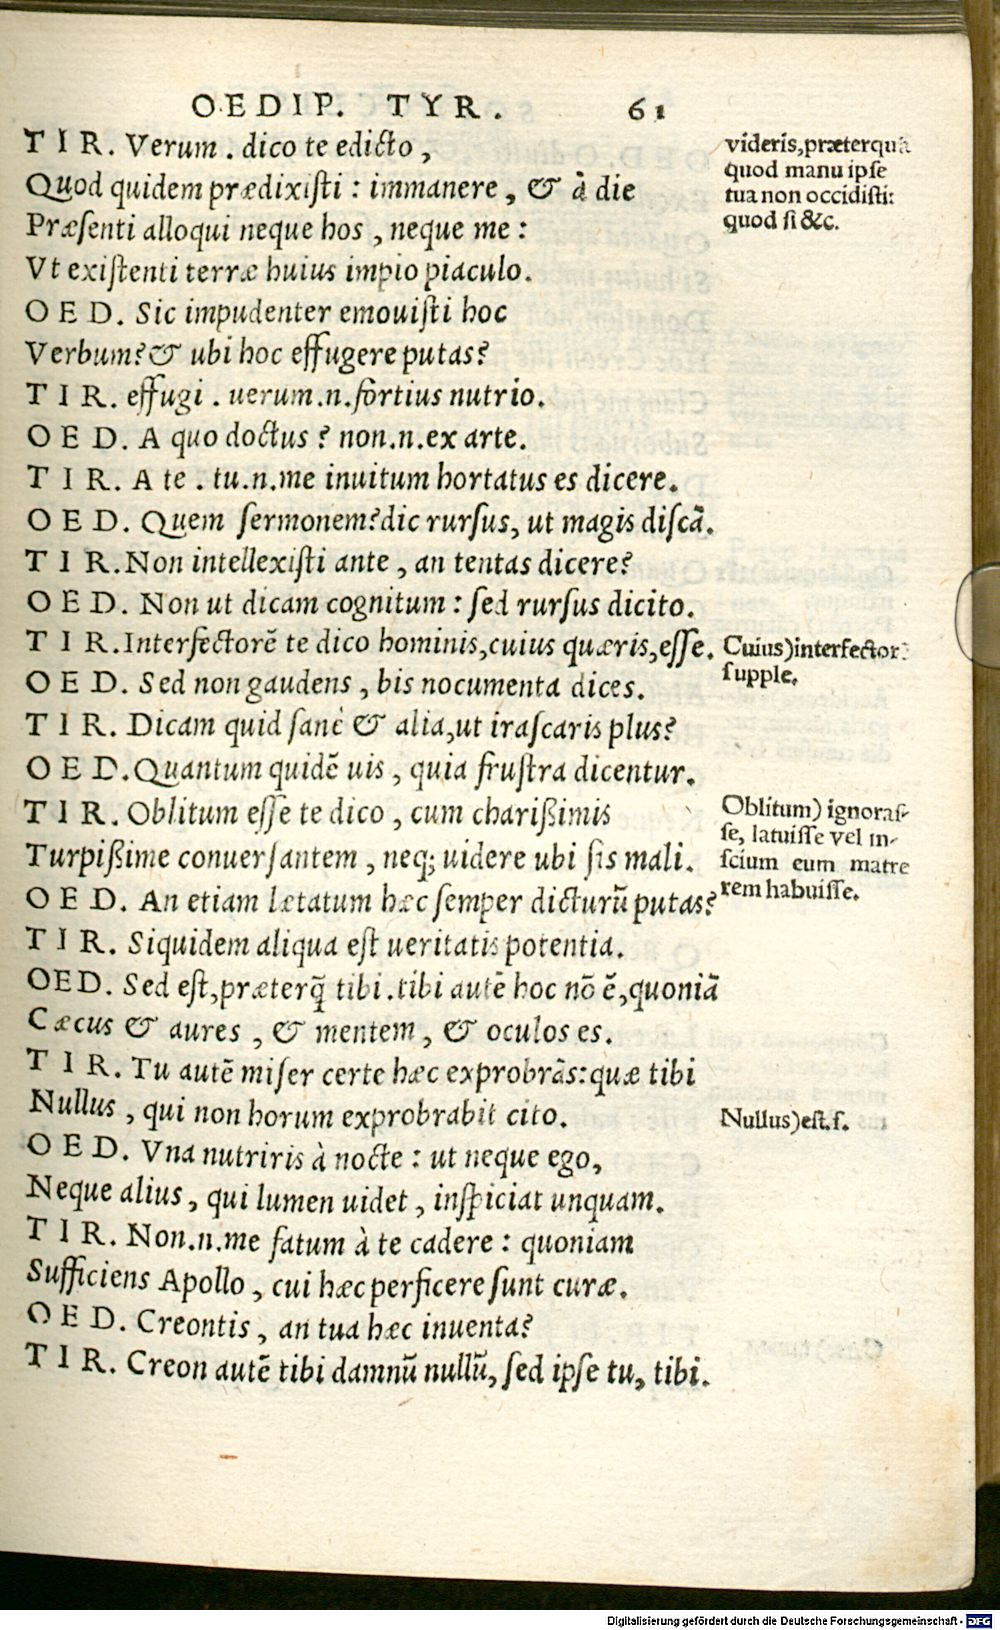 OEDIP. TYR. 61
TIR. Verum . dico te edicto ,
Quod quidem prædixiſti : immanere , & à die
Præſenti alloqui neque hos , neque me :
Vt exiſtenti terræ huius impio piaculo.
OED. Sic impudenter emouiſti hoc
Verbum? & ubi hoc effugere putas?
TIR. effugi . uerum.n.fortius nutrio.
OED. A quo doctus ? non.n.ex arte.
TIR. A te . tu.n.me inuitum hortatus es dicere.
OED. Quem ſermonem?dic rurſus, ut magis diſcã.
TIR. Non intellexiſti ante , an tentas dicere?
OED. Non ut dicam cognitum : ſed rurſus dicito.
TIR. Interfectorẽ te dico hominis,cuius quæris,eſſe.
OED. Sed non gaudens , bis nocumenta dices.
TIR. Dicam quid ſanè & alia,ut iraſcaris plus?
OED. Quantum quidẽ uis , quia fruſtra dicentur.
TIR. Oblitum eſſe te dico , cum charißimis
Turpißime conuerſantem , neq; uidere ubi ſis mali.
OED. An etiam lætatum hæc ſemper dicturũ putas?
TIR. Siquidem aliqua eſt ueritatis potentia.
OED. Sed eſt,præterq̃ tibi.tibi autẽ hoc nõ ẽ,quoniã
Cæcus & aures , & mentem , & oculos es.
TIR. Tu autẽ miſer certe hæc exprobrãs:quæ tibi
Nullus , qui non horum exprobrabit cito.
OED. Vna nutriris à nocte : ut neque ego,
Neque alius , qui lumen uidet , inſpiciat unquam.
TIR. Non.n.me fatum à te cadere : quoniam
Sufficiens Apollo , cui hæc perficere ſunt curæ.
OED. Creontis , an tua hæc inuenta?
TIR. Creon autẽ tibi damnũ nullũ, ſed ipſe tu, tibi.
videris,præterquã
quod manu ipſe
tua non occidiſti:
quod ſi &c.
Cuius)interfector
ſupple.
Oblitum) ignoraſ-
ſe, latuiſſe vel in-
ſcium eum matre
rem habuiſſe.
Nullus)eſt.ſ.
Digitalisierung gefördert durch die Deutsche Forschungsgemeinschaft - DFG